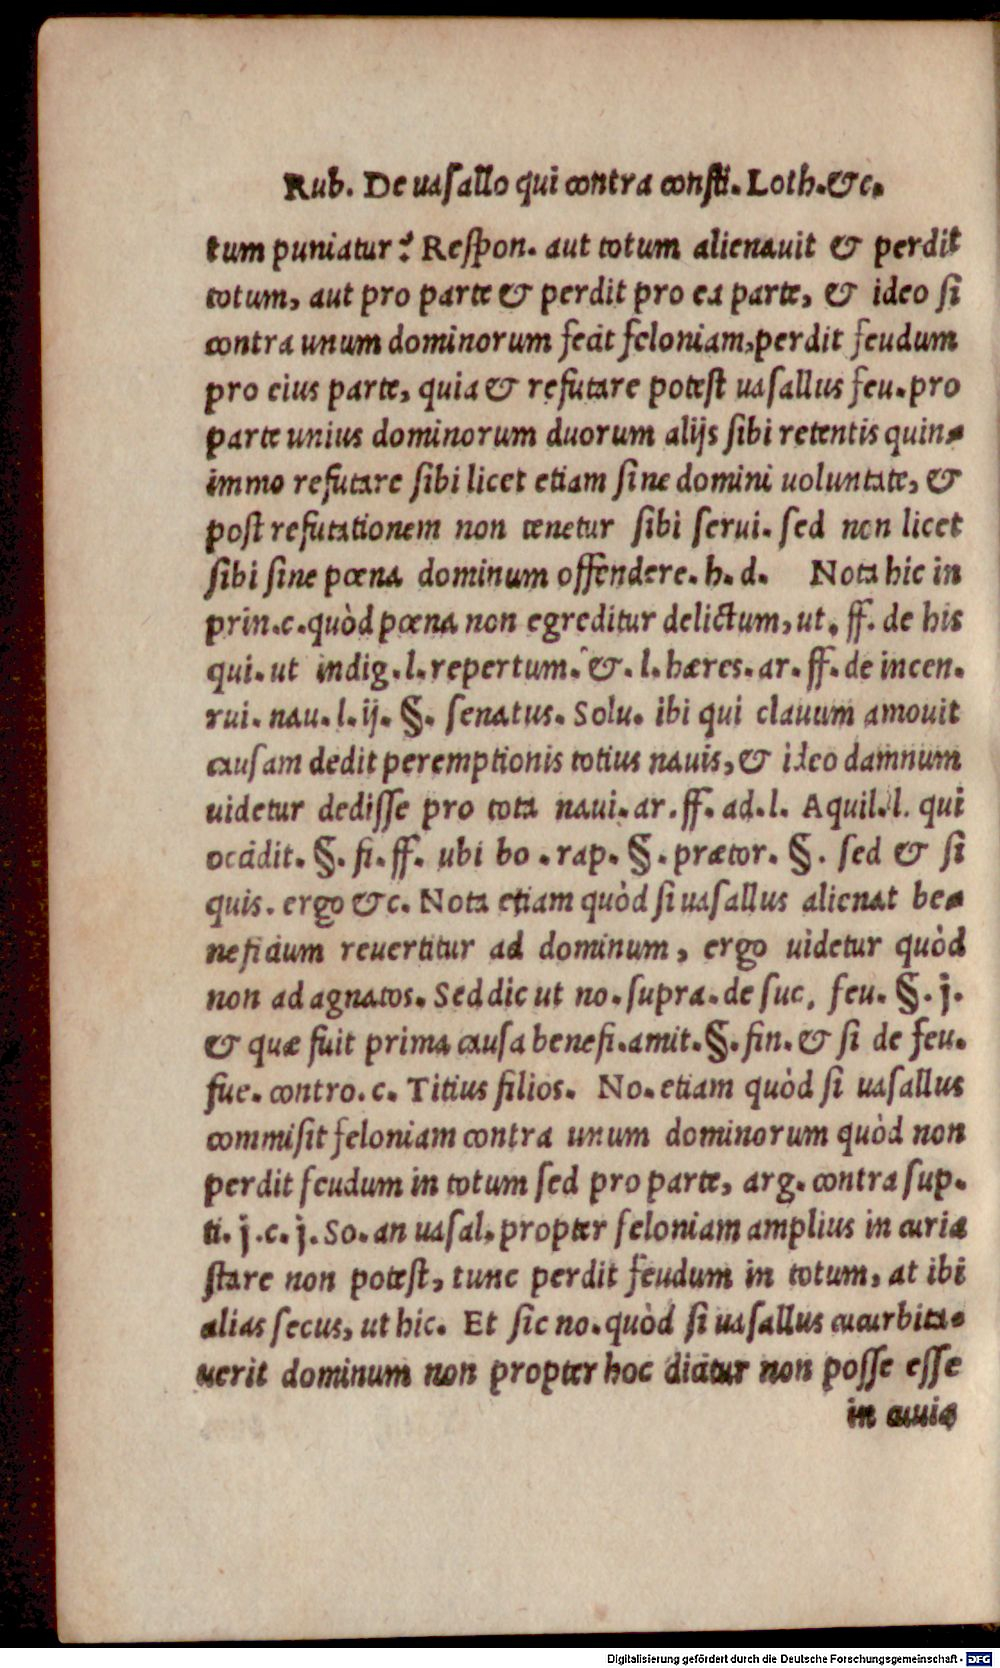 Rub. De uasallo qui contra consti. Loth. &c.
tum puniatur? Respon. aut totum alienauit & perdit
totum, aut pro parte & perdit pro ea parte, & ideo si
contra unum dominorum fecit feloniam, perdit feudum
pro eius parte, quia & refutare potest uasallus feu. pro
parte unius dominorum duorum alijs sibi retentis quin-
immo refutare sibi licet etiam sine domini uoluntate, &
post refutationem non tenetur sibi serui. sed non licet
sibi sine pœna dominum offendere. h. d. Nota hic in
prin. c. quòd pœna non egreditur delictum, ut. ff. de his
qui. ut indig. l. repertum. & . l. hæres. ar. ff. de incen.
rui. nau. l. ij. §. senatus. Solu. ibi qui clauum amouit
causam dedit peremptionis totius nauis, & ideo damnum
uidetur dedisse pro tota naui. ar. ff. ad. l. Aquil. l. qui
occidit. §. fi. ff. ubi bo . rap. §. prætor. §. sed & si
quis. ergo &c. Nota etiam quòd si uasallus alienat be-
neficium reuertitur ad dominum, ergo uidetur quòd
non ad agnatos. Sed dic ut no. supra. de suc. feu. §. j.
& quæ fuit prima causa benefi. amit. §. fin. & si de feu.
fue. contro. c. Titius filios. No. etiam quòd si uasallus
commisit feloniam contra unum dominorum quòd non
perdit feudum in totum sed pro parte, arg. contra sup.
ti. j. c. j. So. an uasal. propter feloniam amplius in curia
stare non potest, tunc perdit feudum in totum, at ibi
alias secus, ut hic. Et sic no. quòd si uasallus cucurbita-
uerit dominum non propter hoc dicitur non posse esse
in curia
Digitalisierung gefördert durch die Deutsche Forschungsgemeinschaft - DFG